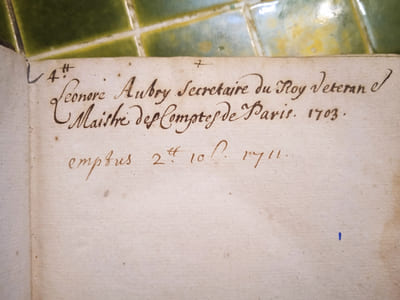 4ᵗᵗ
Leonore Aubry Secretaire du Roy Veteran &
Maistre des Comptes de Paris. 1703.
emptus 2ᵗᵗ 10ˢ. 1711.